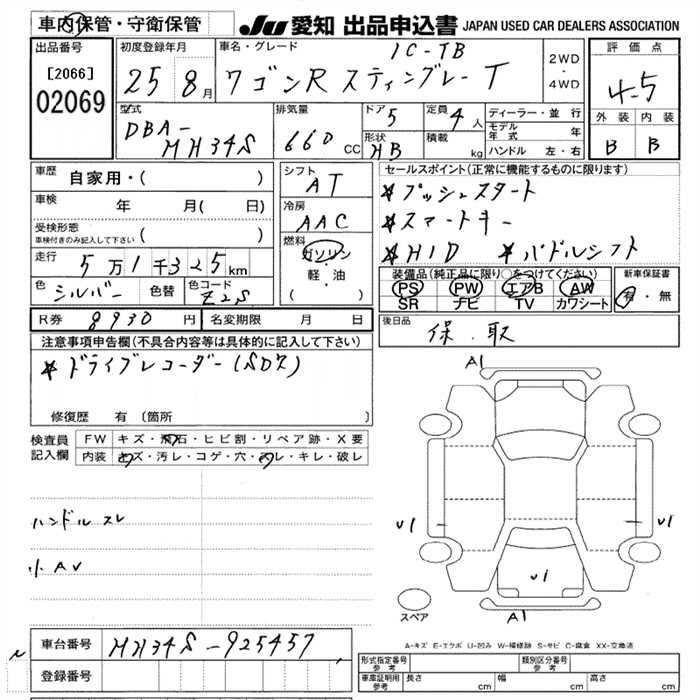 車内保管・守衛保管 JU 愛知 出品申込書 JAPAN USED CAR DEALERS ASSOCIATION
出品番号 初度登録年月 車名・グレード 1C-TB 2WD・4WD 評価点
[2066] 25 8月 ワゴンR スティングレー T 4-5
02069
型式 排気量 ドア 5 定員 4人 ディーラー・並行 外装 内装
DBA-MH34S 660 CC 形状 HB 積載 kg モデル年式 年 B B
ハンドル 左・右
車歴 自家用・( ) シフト AT セールスポイント(正常に機能するものに限ります)
車検 年 月( 日) 冷房 AAC *プッシュスタート
受検形態 *スマートキー
車検付きのみ記入して下さい 燃料 ガソリン・軽・油 ( ) *HID *パドルシフト
走行 5万1千325km 装備品(純正品に限り○をつけてください) 新車保証書
色 シルバー 色替 色コード Z2S PS PW エアB AW 有・無
SR ナビ TV カワシート
R券 8930円 名変期限 月 日 後日品 保.取
注意事項申告欄(不具合内容等は具体的に記入して下さい)
*ドライブレコーダー(SDカ)
修復歴 有 〔箇所
A1
検査員記入欄 FW キズ・飛石・ヒビ割・リペア跡・X要
内装 キズ・汚レ・コゲ・穴・スレ・キレ・破レ
ハンドルスレ
U1 U1
小AU
U1
スペア
A1
A-キズ E-エクボ U-凹み W-補修跡 S-サビ C-腐食 XX-交換済
車台番号 MH34S-925457
登録番号
形式指定番号 参考 類別区分番号 参考
車庫証明用 参考 長さ cm 幅 cm 高さ cm